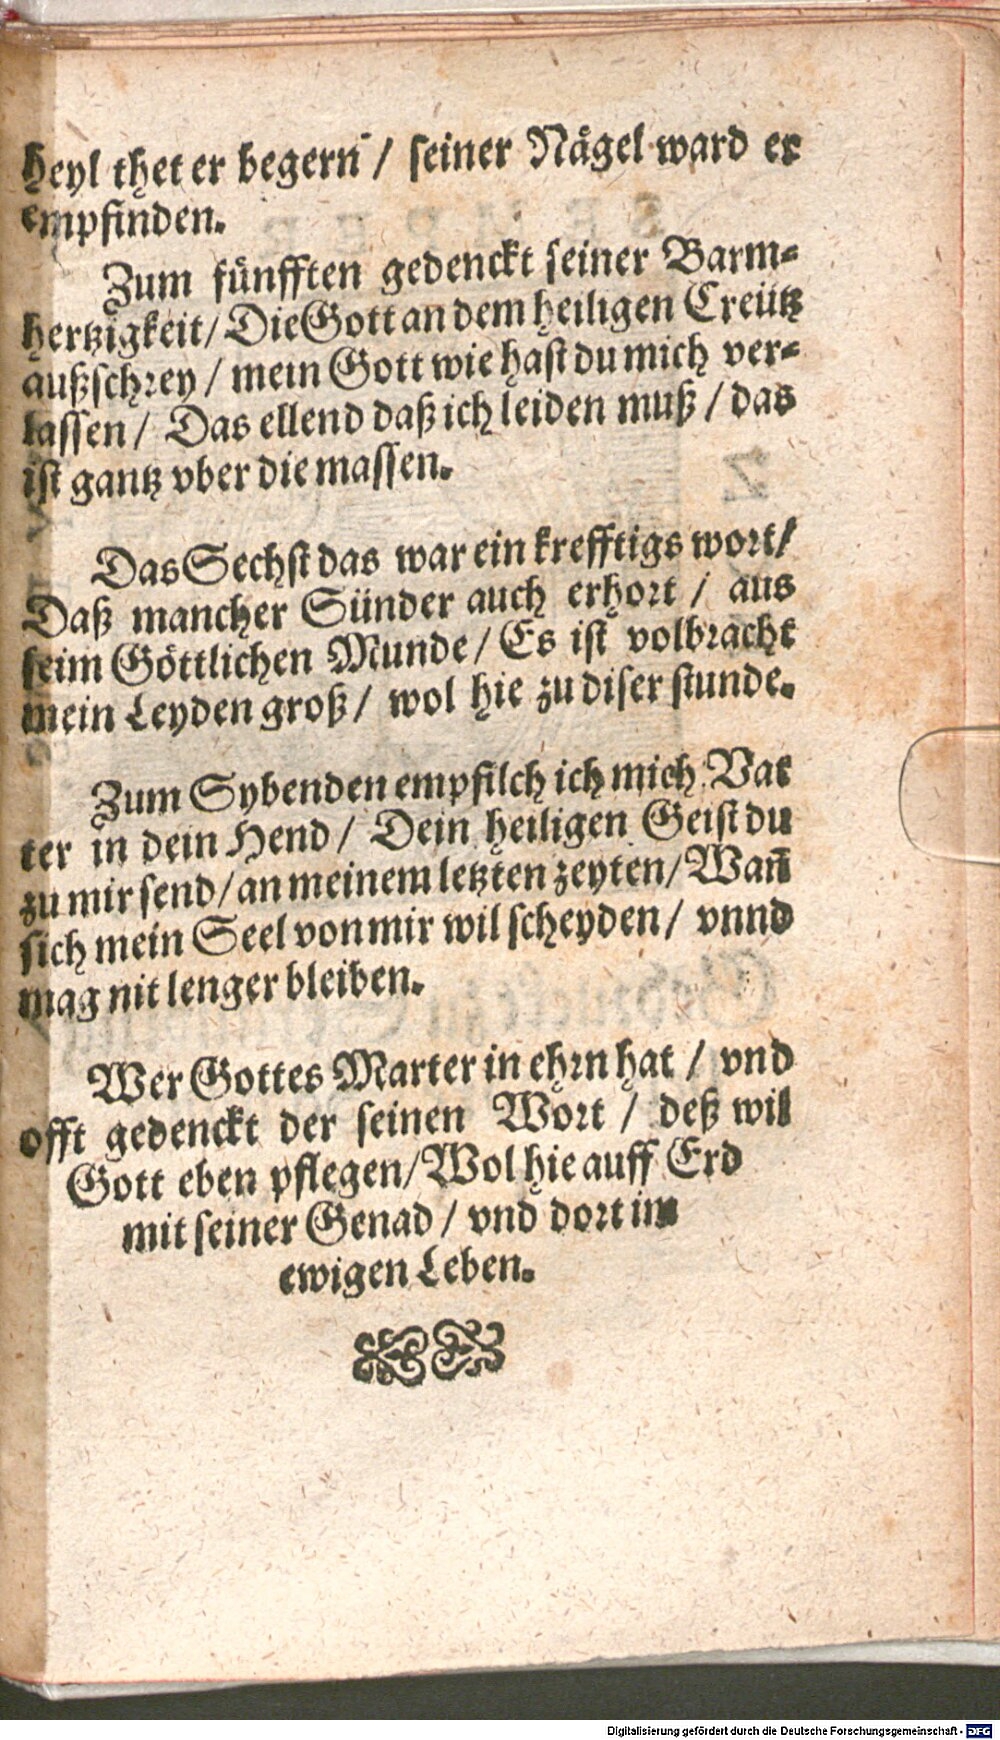 heyl thet er begern / seiner Nägel ward er
empfinden.
Zum fünfften gedenckt seiner Barm-
hertzigkeit / Die Gott an dem heiligen Creütz
außschrey / mein Gott wie hast du mich ver-
lassen / Das ellend daß ich leiden muß / das
ist gantz vber die massen.
Das Sechst das war ein krefftigs wort /
Daß mancher Sünder auch erhort / aus
seim Göttlichen Munde / Es ist volbracht
mein Leyden groß / wol hie zu diser stunde.
Zum Sybenden empfilch ich mich Vat
ter in dein Hend / Dein heiligen Geist du
zu mir send / an meinem letzten zeyten / Wañ
sich mein Seel von mir wil scheyden / vnnd
mag nit lenger bleiben.
Wer Gottes Marter in ehrn hat / vnd
offt gedenckt der seinen Wort / deß wil
Gott eben pflegen / Wol hie auff Erd
mit seiner Genad / vnd dort im
ewigen Leben.
Digitalisierung gefördert durch die Deutsche Forschungsgemeinschaft - DFG